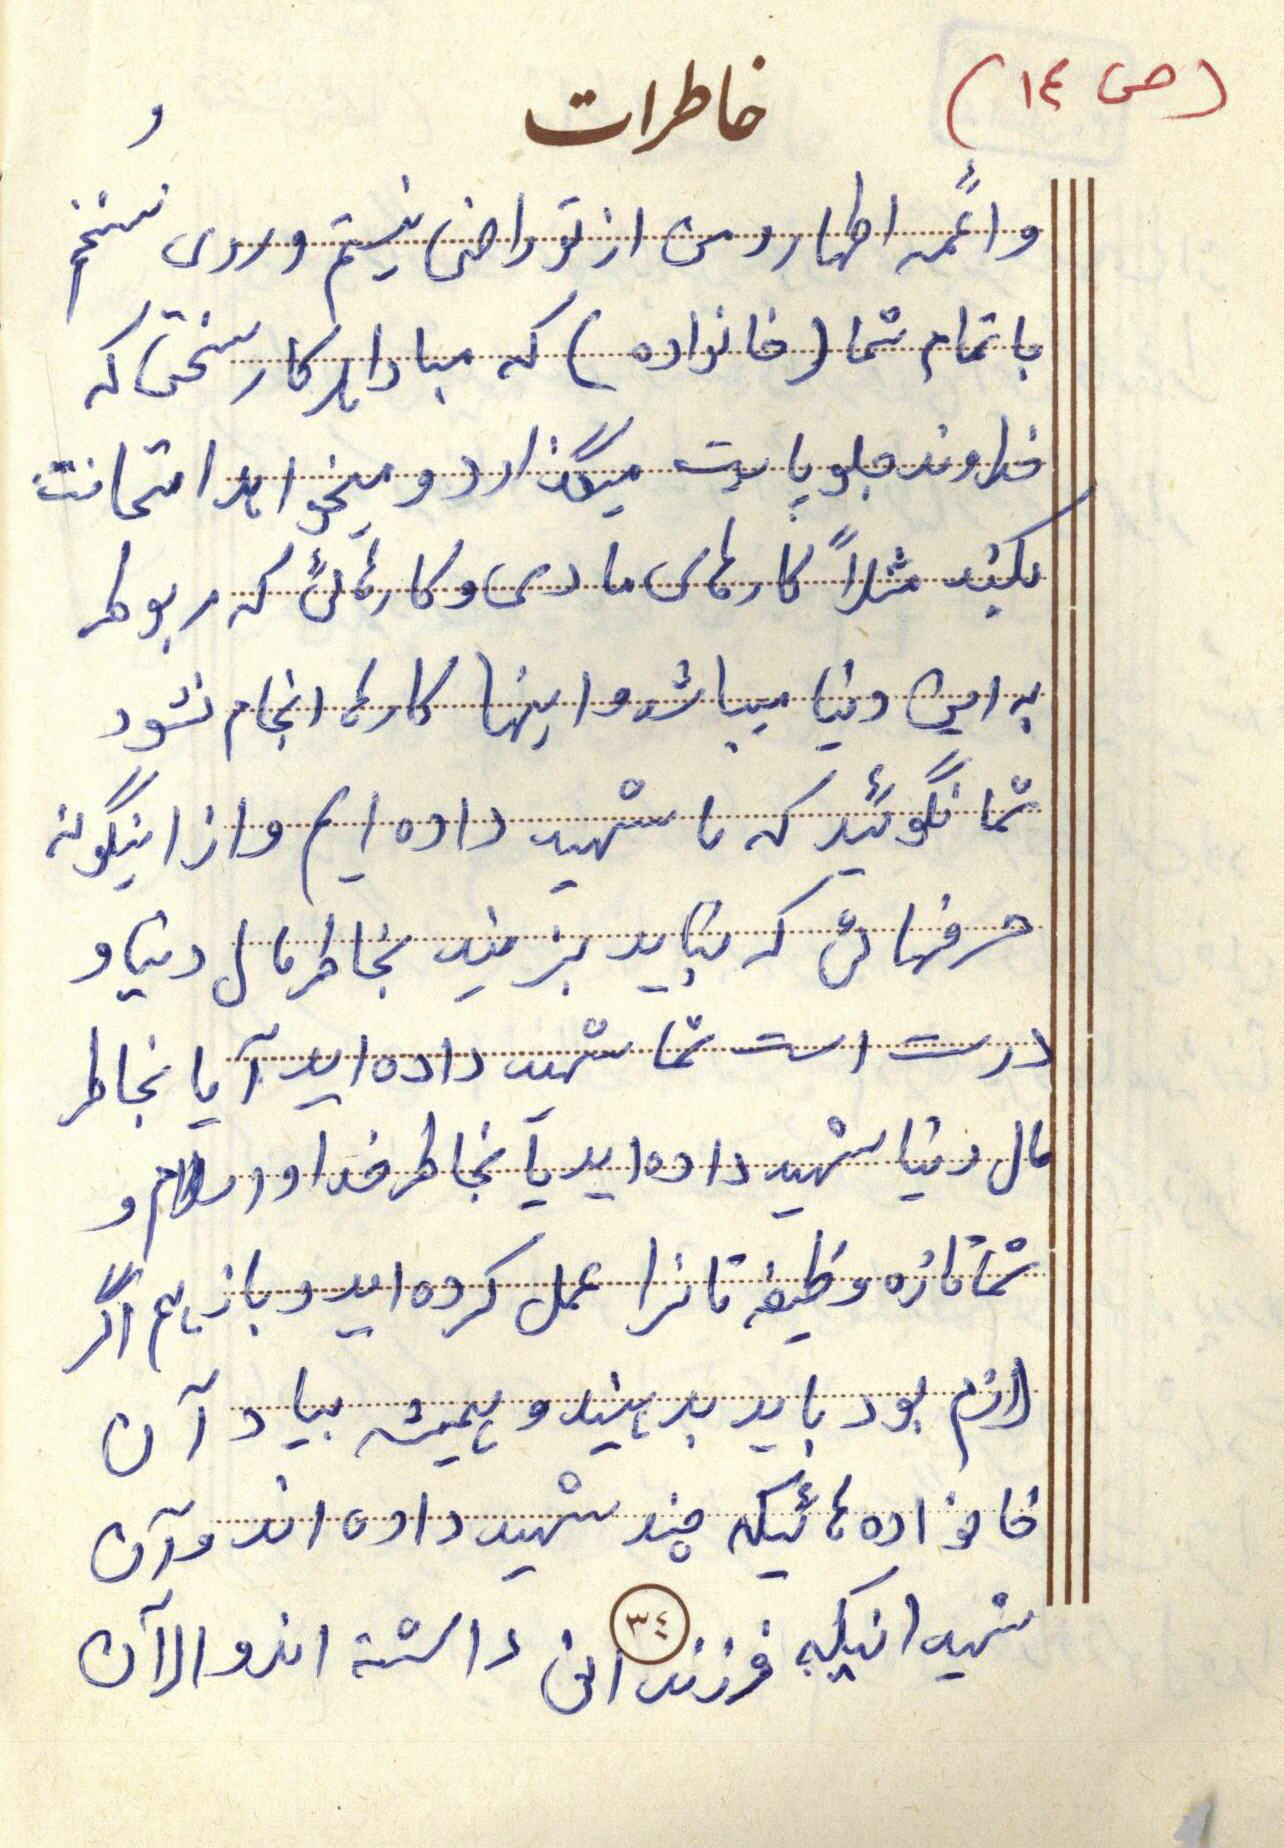 (ص ١٤)
خاطرات
و
و ائمه اطهار و من از تو راضی نیستم و روی سخنم
با تمام شما (خانواده) که مبادا هر کار سختی که
خداوند جلو پایت میگذارد و میخواهد امتحانت
بکند مثلاً کارهای مادی و کارهائی که مربوط
به این دنیا میباشد و اینها کارها انجام نشود
شما نگوئید که ما شهید داده ایم و از اینگونه
حرفهائی که نباید بزنید بخاطر مال دنیا و
درست است شما شهید داده اید آیا بخاطر
مال دنیا شهید داده اید یا بخاطر خدا و اسلام و
شما تازه وظیفه تانرا عمل کرده اید و باز هم اگر
لازم بود باید بدهید و همیشه بیاد آن
خانواده هائیکه چند شهید داده اند و آن
شهیدانیکه فرزندانی داشته اند و الا آن
٣٤